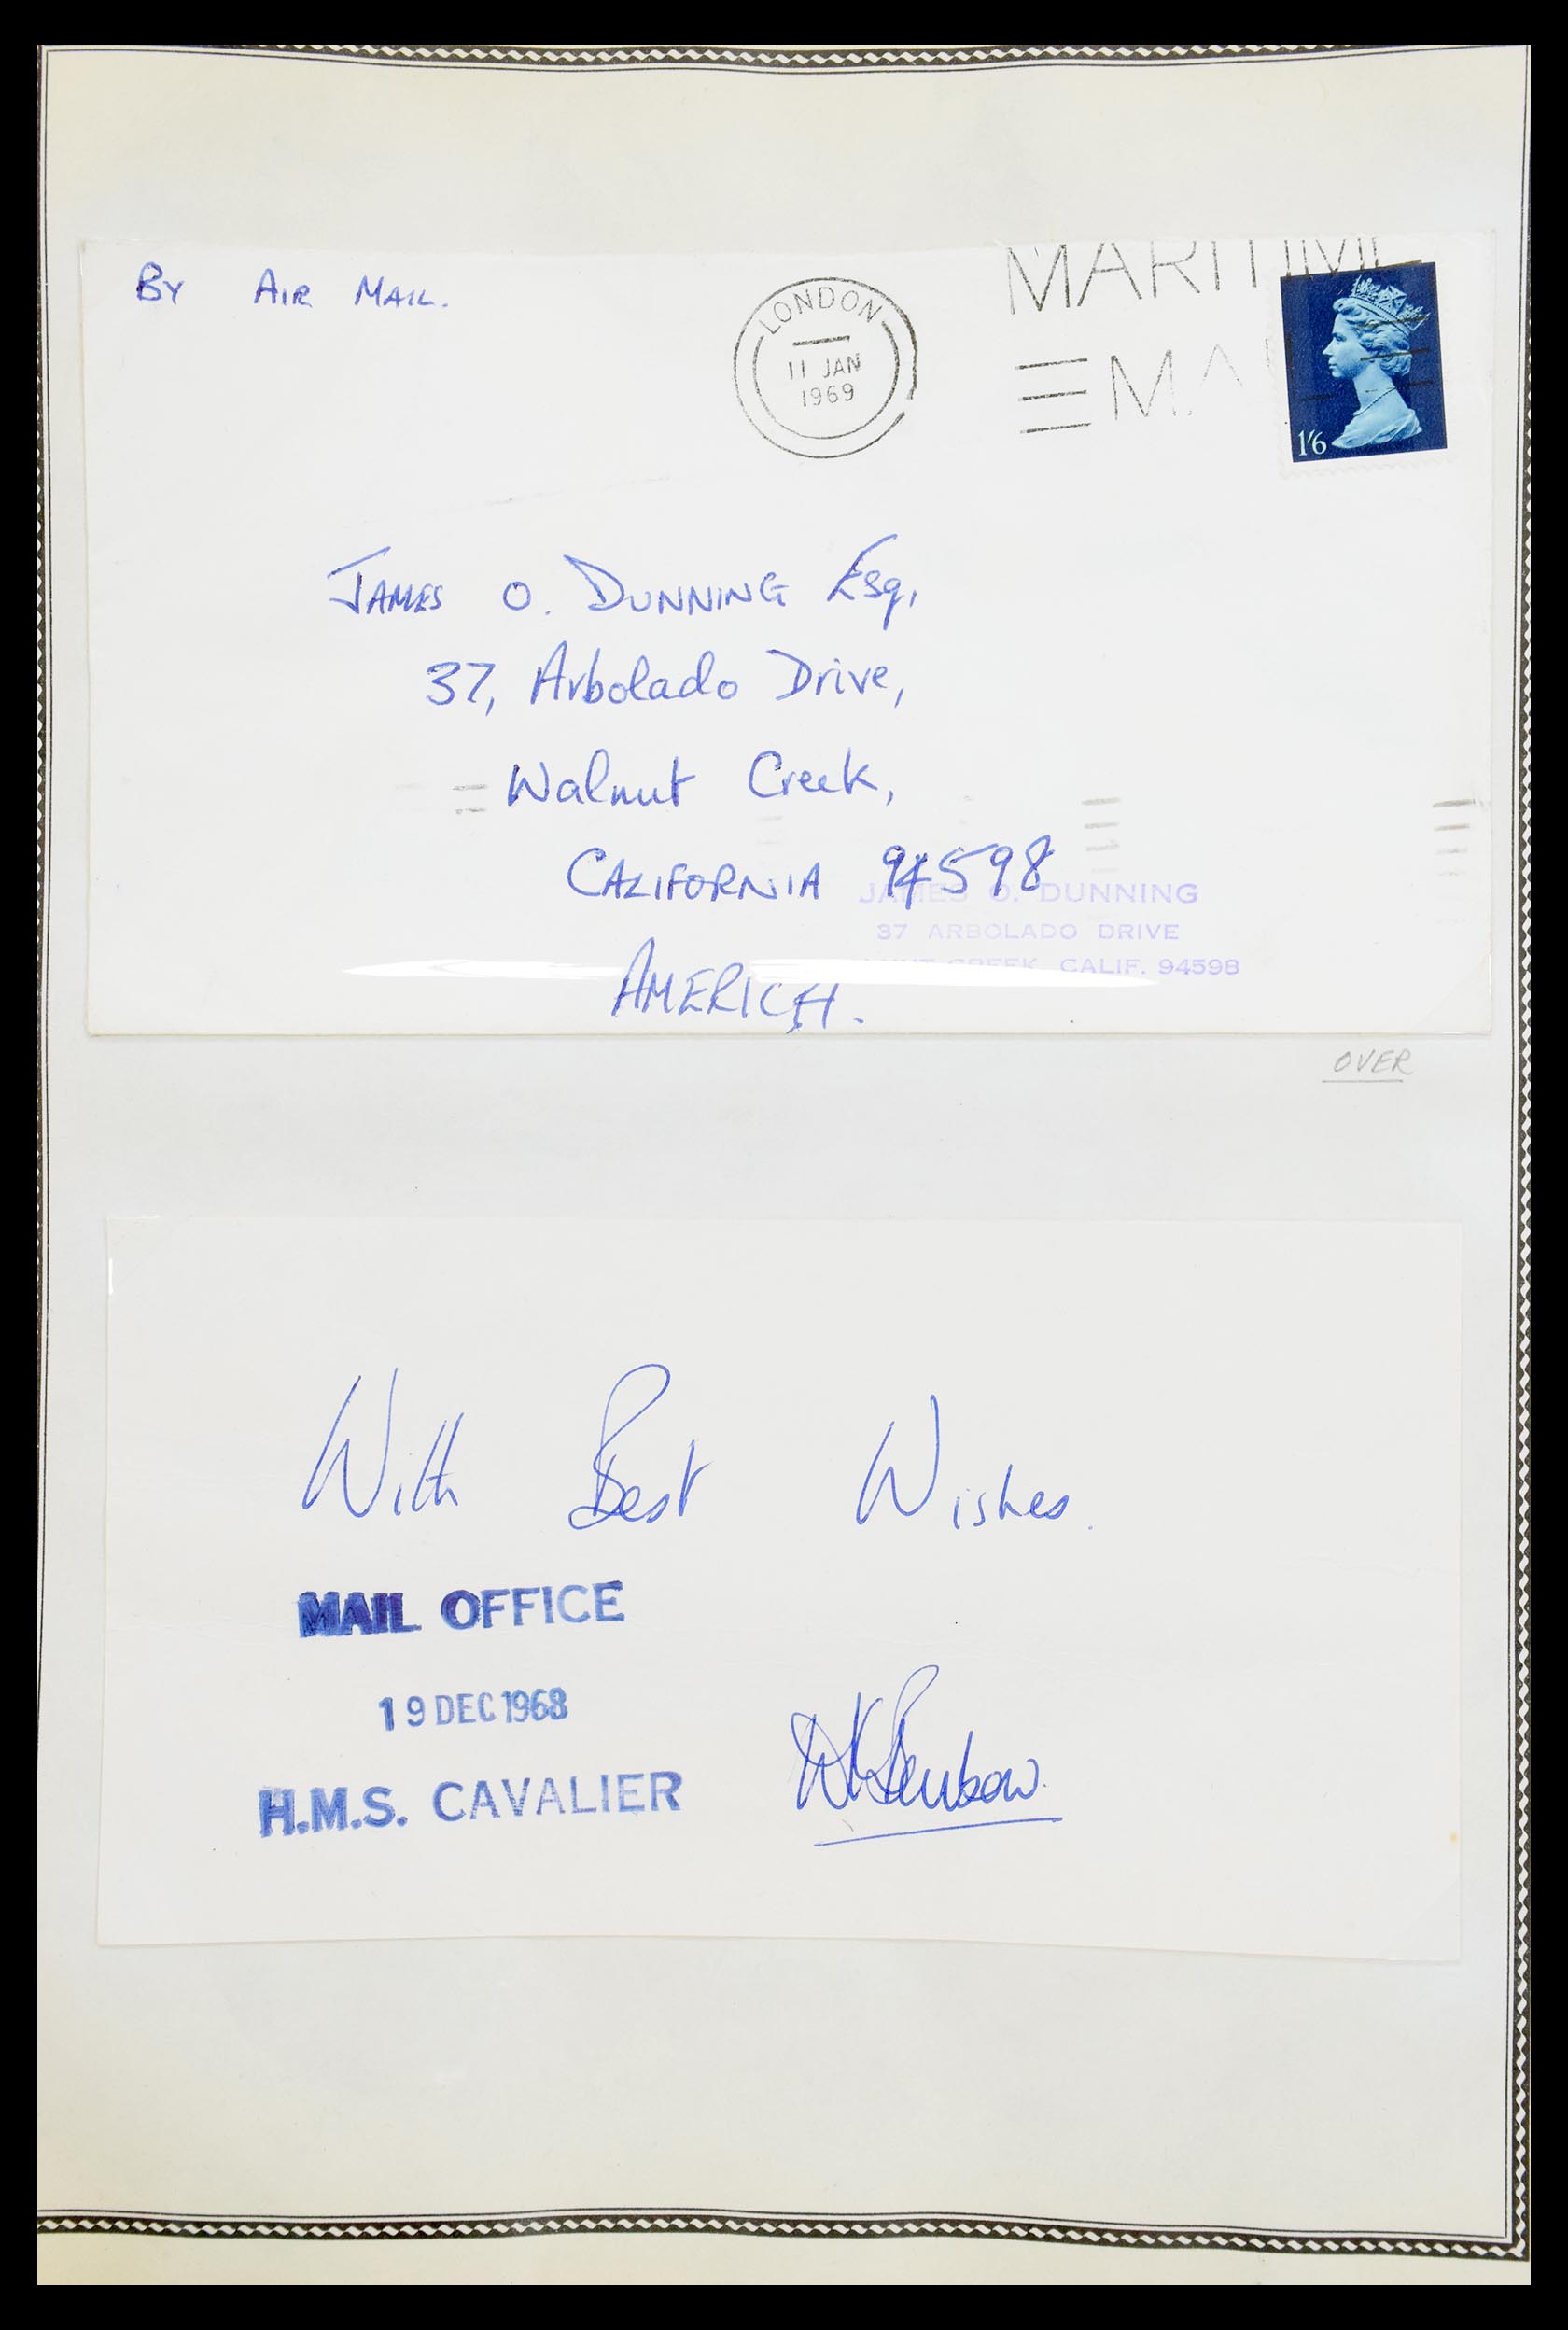 By Air Mail.
LONDON
11 JAN
1969
MARITIME
MA
1/6
James O. Dunning Esq,
37, Arbolado Drive,
Walnut Creek,
California 94598
America.
JAMES O. DUNNING
37 ARBOLADO DRIVE
CREEK, CALIF. 94598
OVER
With Best Wishes.
MAIL OFFICE
19 DEC 1968
H.M.S. CAVALIER
Benbow